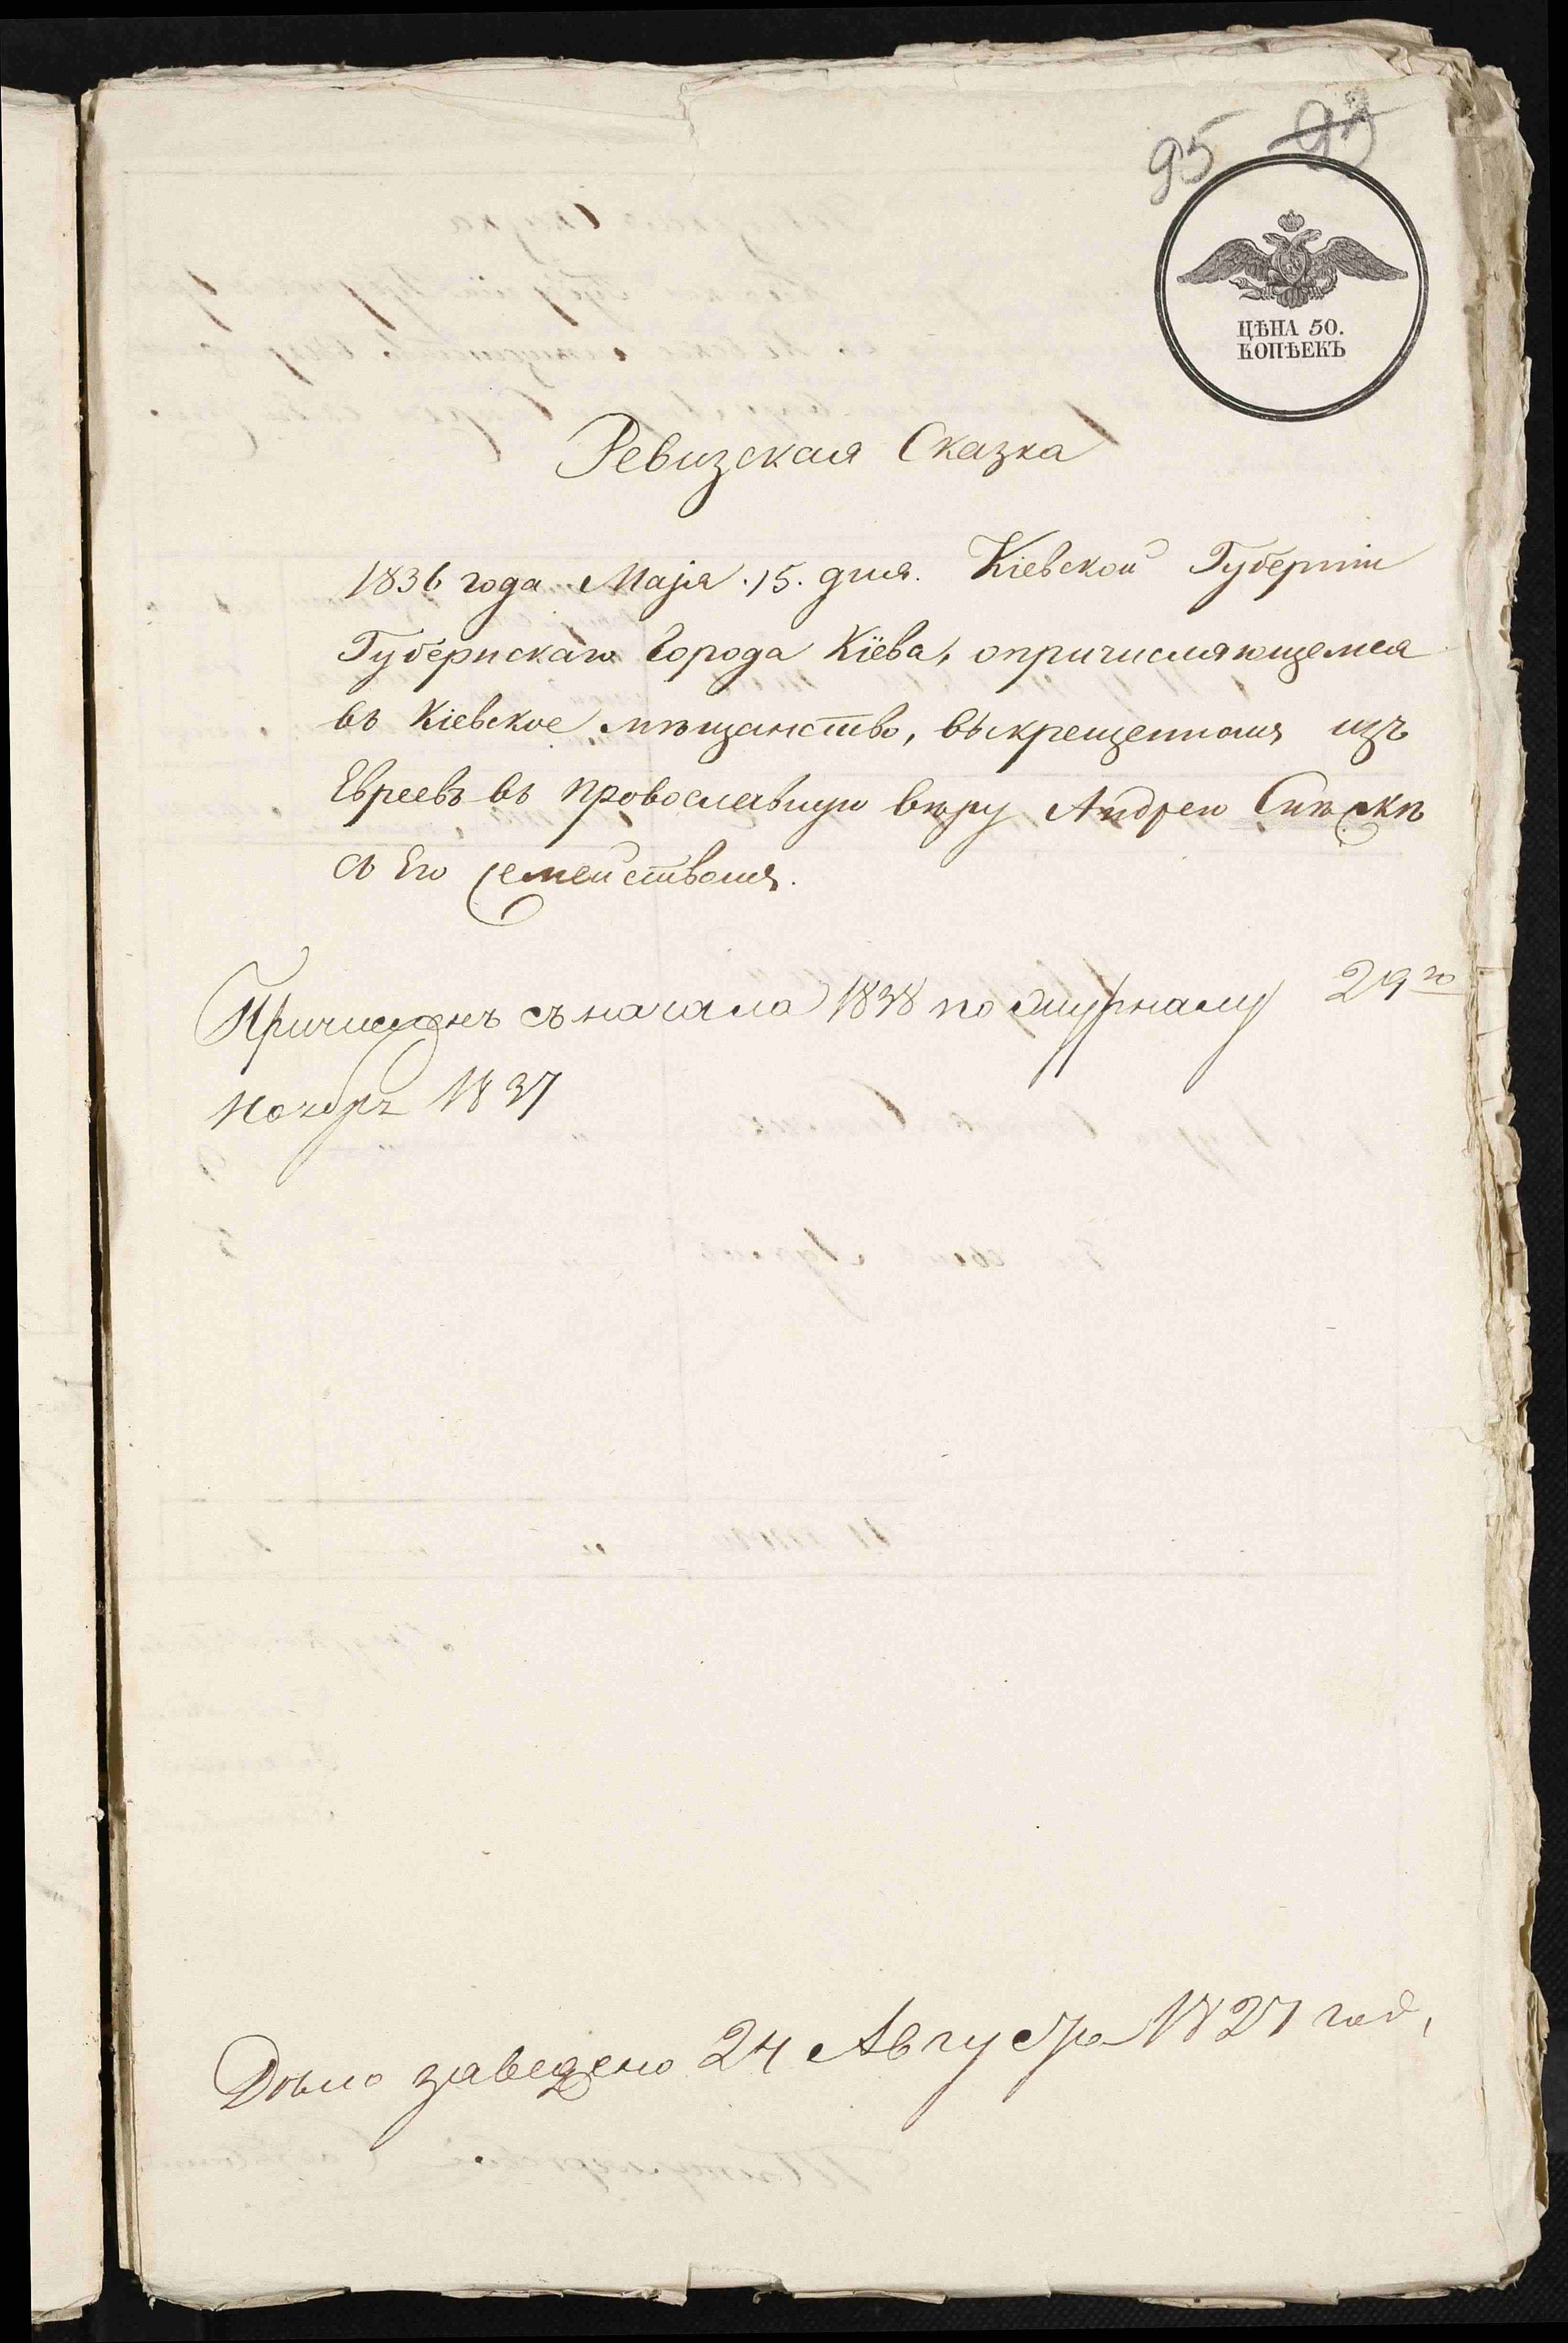 95 93
ЦѢНА 50.
КОПѢЕКЪ
Ревизская Сказка
1836 года Маія .15. дня. Кіевской Губерніи
Губернскаго Города Кіева, опричисляющемся
въ Кіевское мѣщанство, выкрещенномъ изъ
Евреевъ въ провославную вѣру Андрею
съ Его Семействомъ.
Причисленъ съ начала 1838 по журналу 29го
Ноября 1837
Дѣло заведено 24 Августа 1827 год,